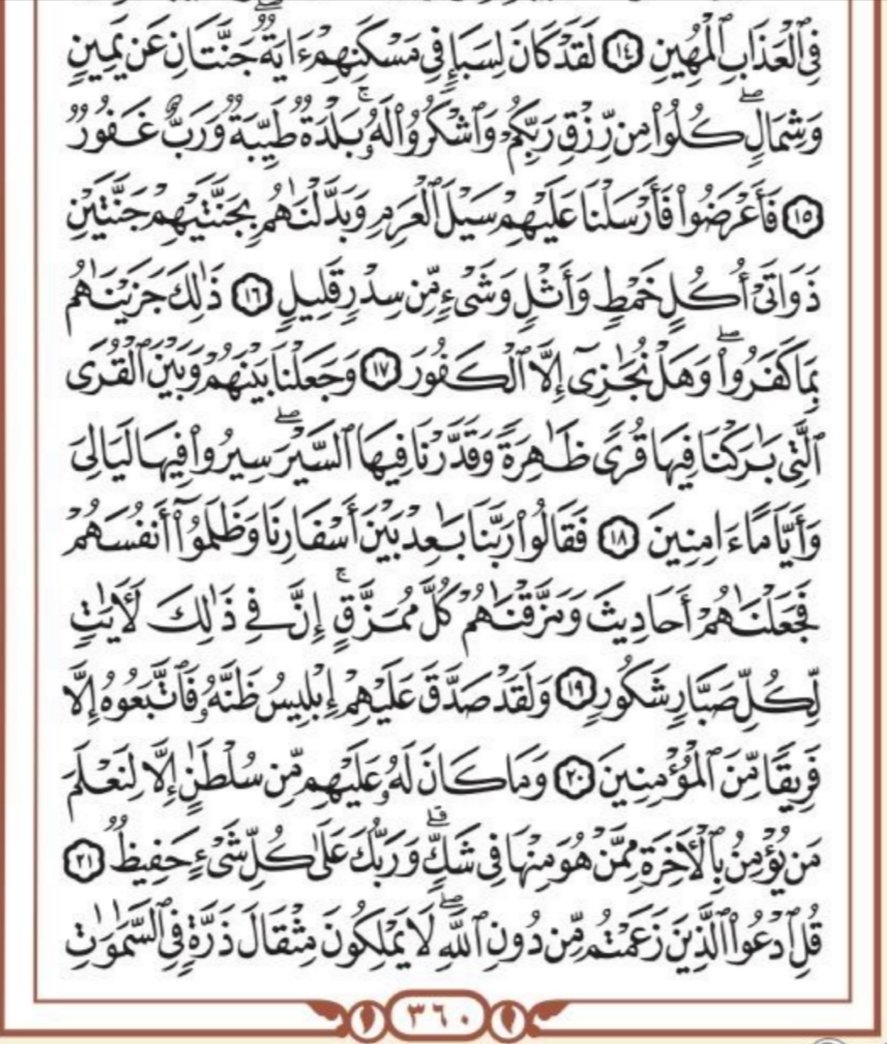 فِي ٱلْعَذَابِ ٱلْمُهِينِ ١٤ لَقَدْ كَانَ لِسَبَإٍ فِي مَسْكَنِهِمْ ءَايَةٌۖ جَنَّتَانِ عَن يَمِينٍ
وَشِمَالٍۖ كُلُوا۟ مِن رِّزْقِ رَبِّكُمْ وَٱشْكُرُوا۟ لَهُۥۚ بَلْدَةٌ طَيِّبَةٌ وَرَبٌّ غَفُورٌ
١٥ فَأَعْرَضُوا۟ فَأَرْسَلْنَا عَلَيْهِمْ سَيْلَ ٱلْعَرِمِ وَبَدَّلْنَٰهُم بِجَنَّتَيْهِمْ جَنَّتَيْنِ
ذَوَاتَيْ أُكُلٍ خَمْطٍ وَأَثْلٍ وَشَيْءٍ مِّن سِدْرٍ قَلِيلٍ ١٦ ذَٰلِكَ جَزَيْنَٰهُم
بِمَا كَفَرُوا۟ۖ وَهَلْ نُجَٰزِيٓ إِلَّا ٱلْكَفُورَ ١٧ وَجَعَلْنَا بَيْنَهُمْ وَبَيْنَ ٱلْقُرَى
ٱلَّتِي بَٰرَكْنَا فِيهَا قُرًى ظَٰهِرَةً وَقَدَّرْنَا فِيهَا ٱلسَّيْرَۖ سِيرُوا۟ فِيهَا لَيَالِيَ
وَأَيَّامًا ءَامِنِينَ ١٨ فَقَالُوا۟ رَبَّنَا بَٰعِدْ بَيْنَ أَسْفَارِنَا وَظَلَمُوٓا۟ أَنفُسَهُمْ
فَجَعَلْنَٰهُمْ أَحَادِيثَ وَمَزَّقْنَٰهُمْ كُلَّ مُمَزَّقٍۚ إِنَّ فِي ذَٰلِكَ لَءَايَٰتٍ
لِّكُلِّ صَبَّارٍ شَكُورٍ ١٩ وَلَقَدْ صَدَّقَ عَلَيْهِمْ إِبْلِيسُ ظَنَّهُۥ فَٱتَّبَعُوهُ إِلَّا
فَرِيقًا مِّنَ ٱلْمُؤْمِنِينَ ٢٠ وَمَا كَانَ لَهُۥ عَلَيْهِم مِّن سُلْطَٰنٍ إِلَّا لِنَعْلَمَ
مَن يُؤْمِنُ بِٱلْءَاخِرَةِ مِمَّنْ هُوَ مِنْهَا فِي شَكٍّۗ وَرَبُّكَ عَلَىٰ كُلِّ شَيْءٍ حَفِيظٌ ٢١
قُلِ ٱدْعُوا۟ ٱلَّذِينَ زَعَمْتُم مِّن دُونِ ٱللَّهِۖ لَا يَمْلِكُونَ مِثْقَالَ ذَرَّةٍ فِي ٱلسَّمَٰوَٰتِ
٣٦٠